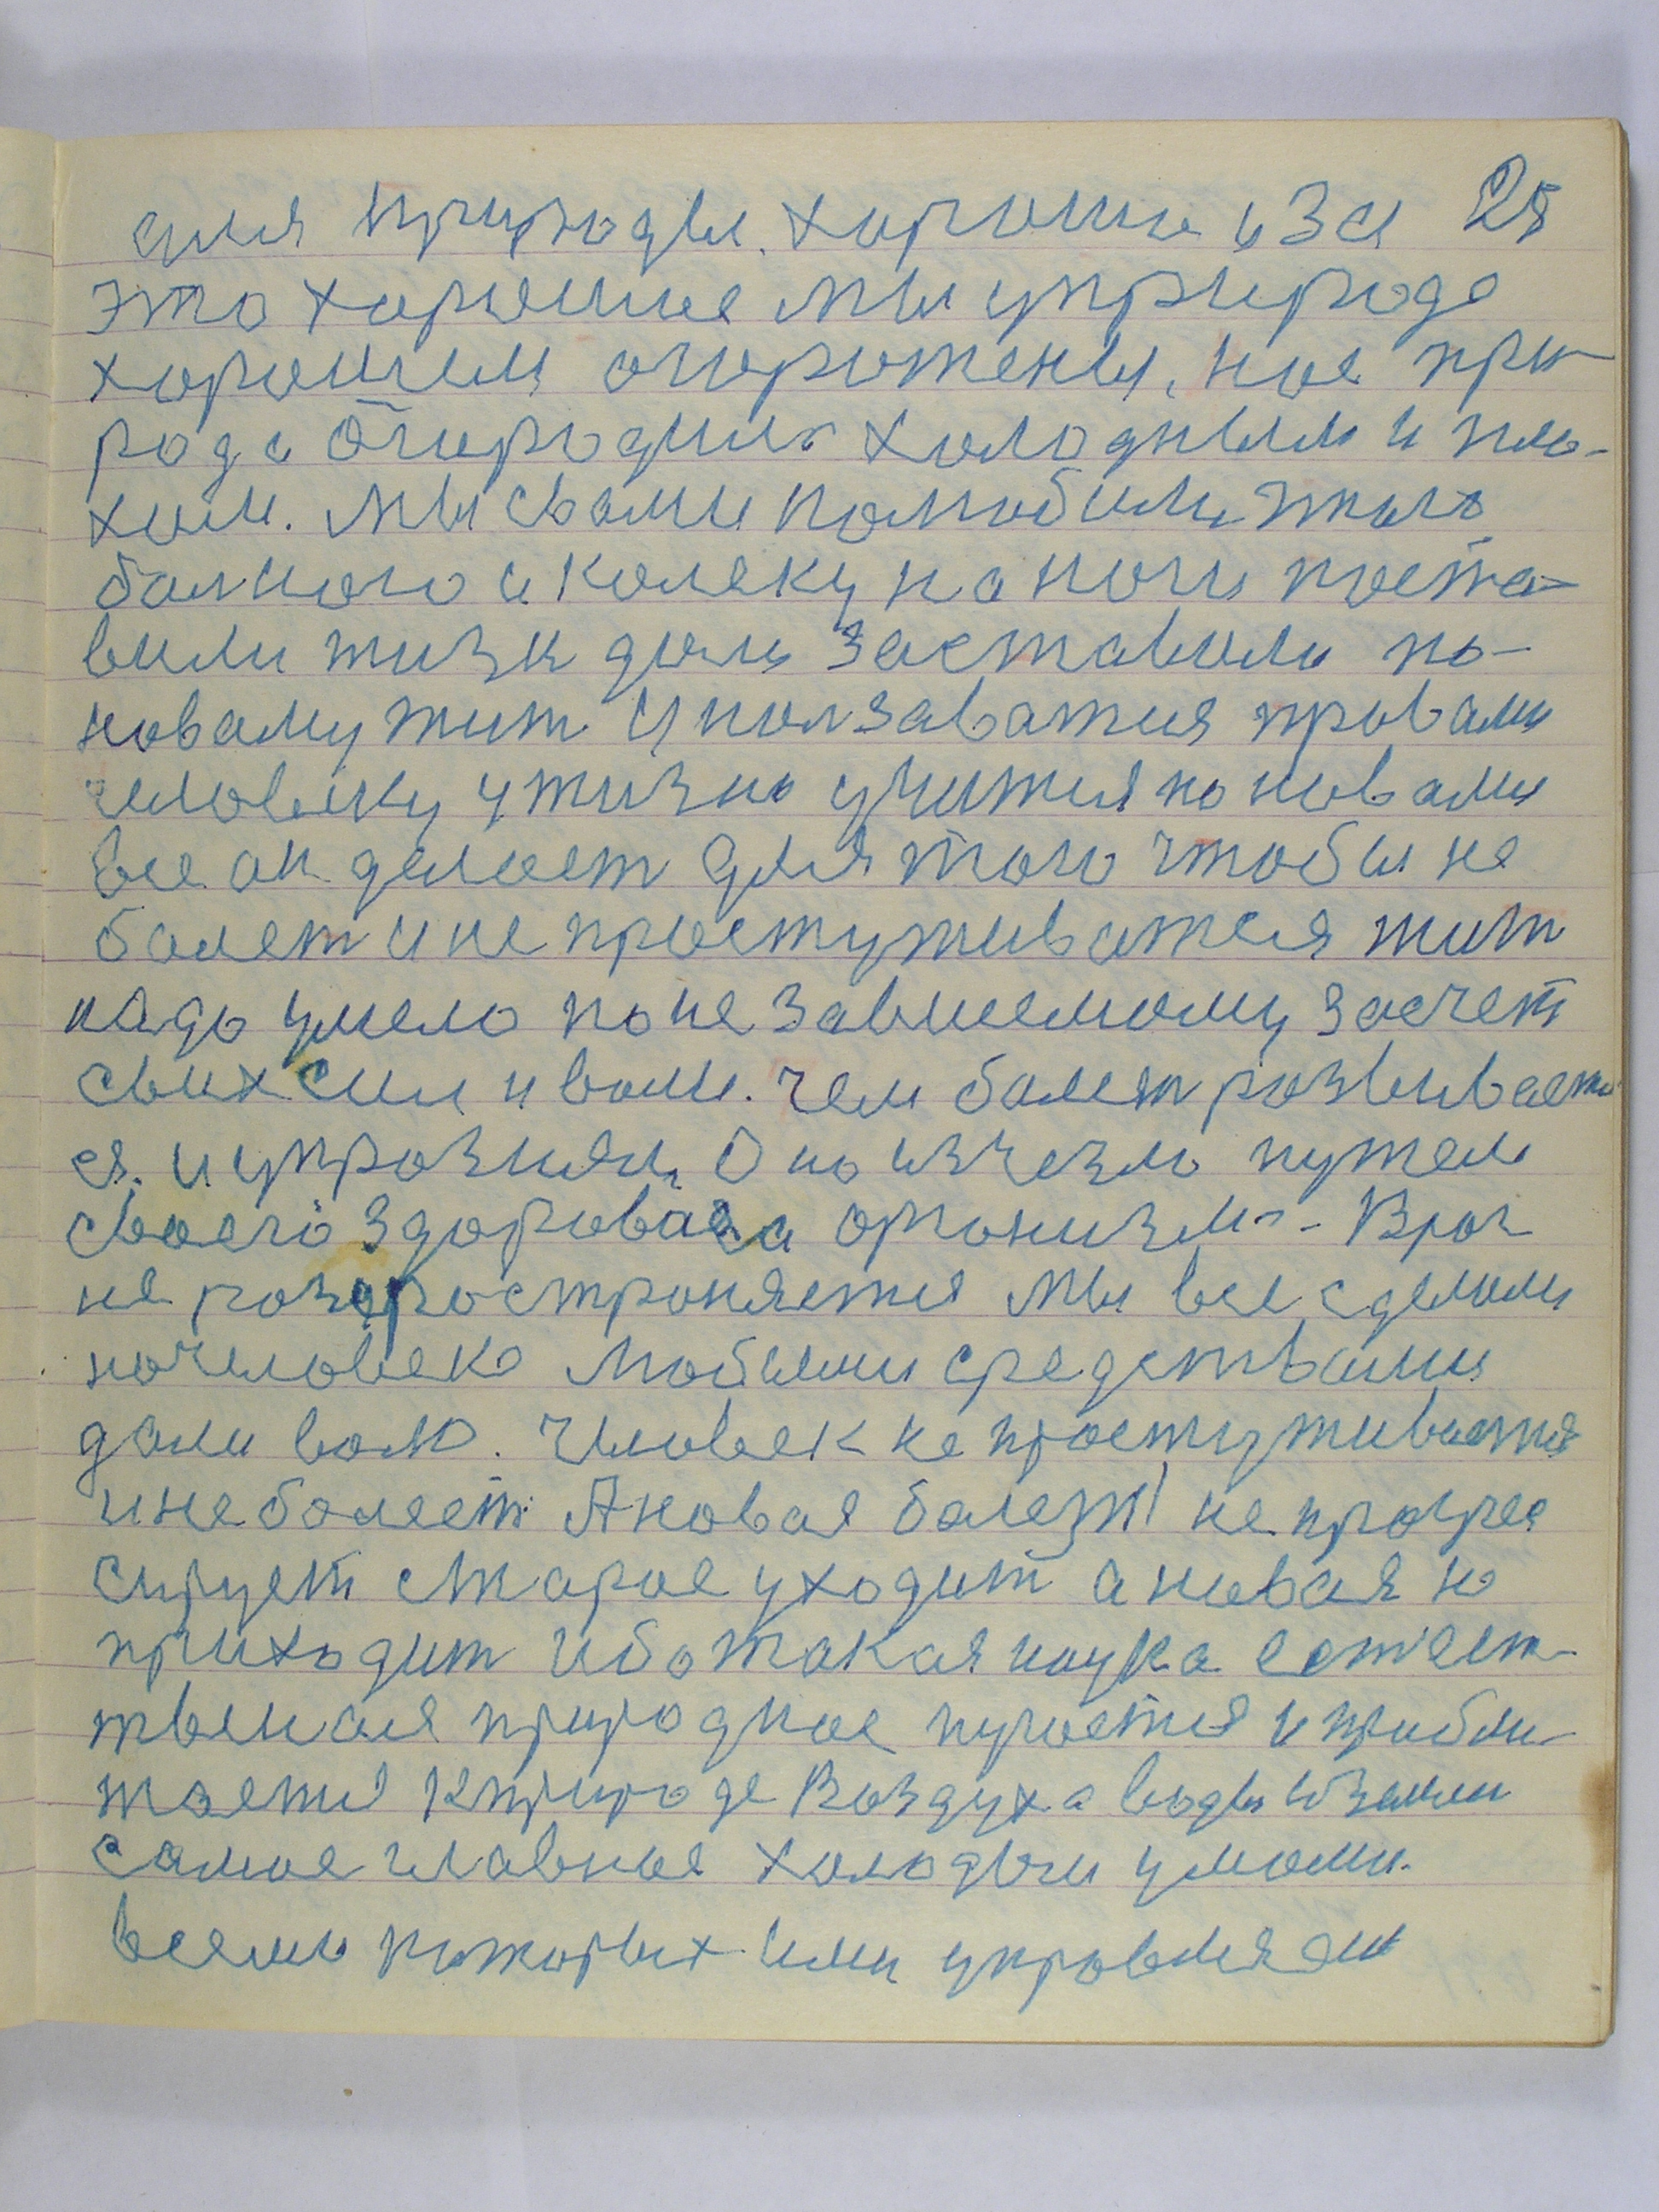 для природы. хорошо и за 25
это хорошее мы уприрода
хорошем огорожены, нас при-
рода огородила холодным и пло-
хим. мы свами полюбили этого
балного и коляку на ноги поста-
вили жизн дали заставили по-
новаму жит и ползаватия правами
человеку ужизни учится по новаму
все он делает для того чтобы не
балет и не простуживатся жит
надо умело по независимому засчет
своих сил и воли. чем балет развивает
ся. и упрозняли Оно изчезло путем
своего здоровава организма - Враг
не распространяется мы все сделали
начеловека любыми средствами
дали волю. Человек не простуживается
и не болеет. А новая балезт не прогрес
сирует старое уходит а новая не
приходит ибо такая наука естест-
твеная природное пускается и прибли-
жается к природе Воздуха воды и земли
самое главное
всеми которых ими управляем